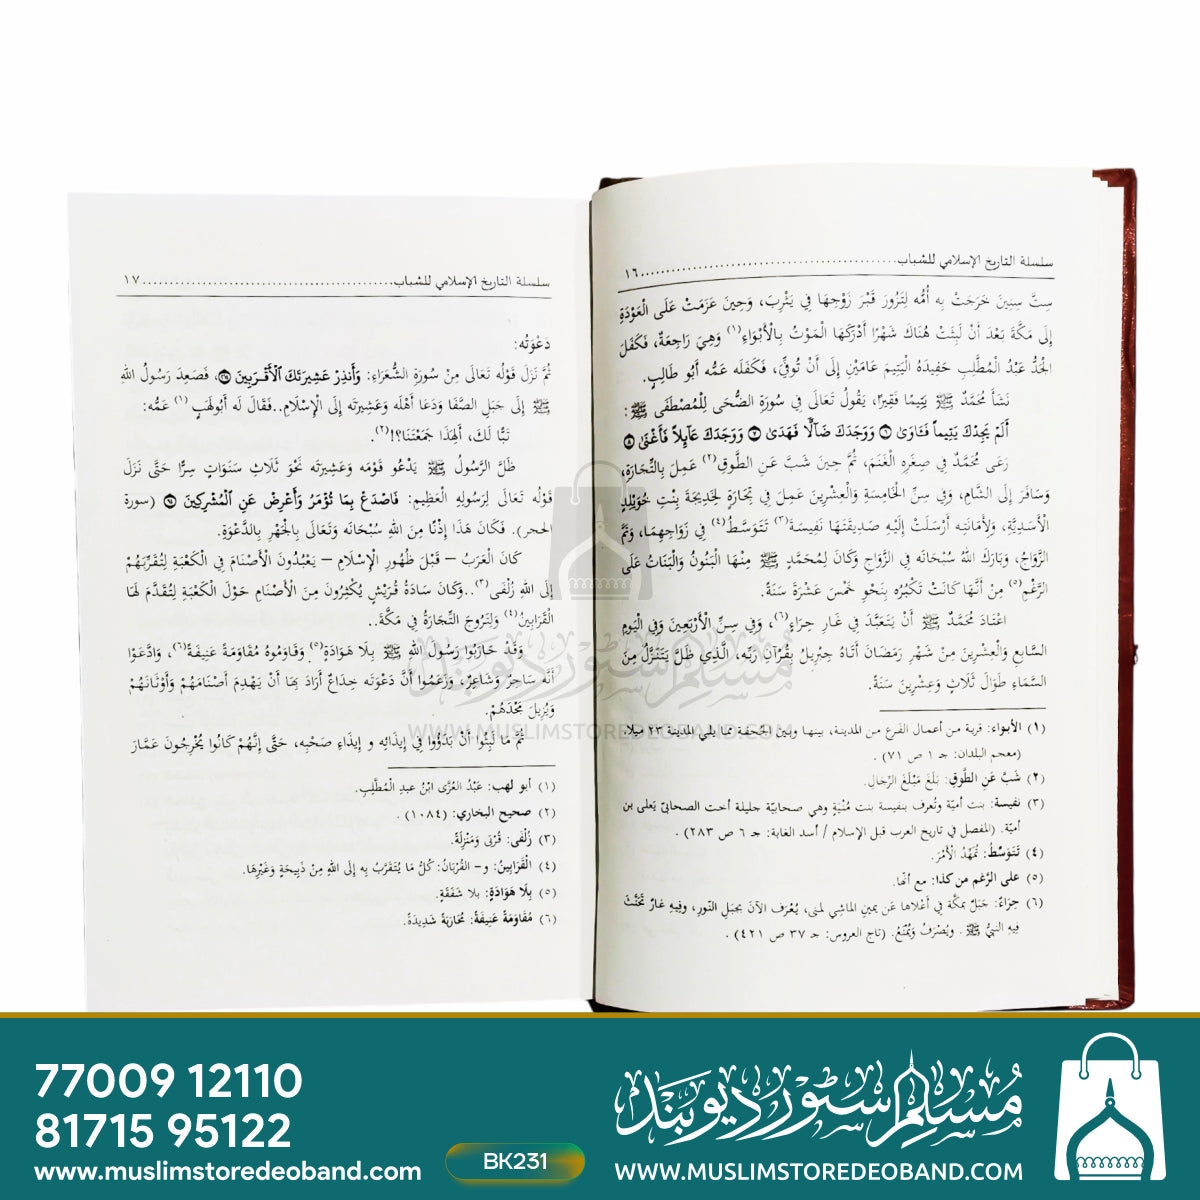 سلسلة التاريخ الإسلامي للشباب................................................١٦
سِتَّ سِنِينَ خَرَجَتْ بِهِ أُمُّهُ لِتَزُورَ قَبْرَ زَوْجِهَا فِي يَثْرِبَ، وَحِينَ عَزَمَتْ عَلَى الْعَوْدَةِ
إِلَى مَكَّةَ بَعْدَ أَنْ لَبِثَتْ هُنَاكَ شَهْرًا أَدْرَكَهَا الْمَوْتُ بِالْأَبْوَاءِ(١) وَهِيَ رَاجِعَةٌ، فَكَفَلَ
الْجَدُّ عَبْدُ الْمُطَّلِبِ حَفِيدَهُ الْيَتِيمَ عَامَيْنِ إِلَى أَنْ تُوفِّيَ، فَكَفَلَه عَمُّه أَبُو طَالِبٍ.
نَشَأَ مُحَمَّدٌ ﷺ يَتِيمًا فَقِيرًا، يَقُولُ تَعَالَى فِي سُورَةِ الضُّحَى لِلْمُصْطَفَى ﷺ:
أَلَمْ يَجِدْكَ يَتِيماً فَـَٔاوَىٰ ٦ وَوَجَدَكَ ضَآلّٗا فَهَدَىٰ ٧ وَوَجَدَكَ عَآئِلاً فَأَغْنَىٰ ٨
رَعَى مُحَمَّدٌ فِي صِغَرِهِ الْغَنَمَ، ثُمَّ حِينَ شَبَّ عَنِ الطَّوقِ(٢) عَمِلَ بِالتِّجَارَةِ،
وَسَافَرَ إِلَى الشَّامِ، وَفِي سِنِّ الْخَامِسَةِ وَالْعِشْرِينَ عَمِلَ فِي تِجَارَةٍ لِخَدِيجَةَ بِنْتِ خُوَيْلِدٍ
الْأَسَدِيَّةِ، وَلِأَمَانَتِهِ أَرْسَلَتْ إِلَيْهِ صَدِيقَتَهَا نَفِيسَةَ(٣) تَتَوَسَّطُ(٤) فِي زَوَاجِهِمَا، وَتَمَّ
الزَّوَاجُ، وَبَارَكَ اللهُ سُبْحَانَه فِي الزَّوَاجِ وَكَانَ لِمُحَمَّدٍ ﷺ مِنْهَا الْبَنُونُ وَالْبَنَاتُ عَلَى
الرَّغْمِ(٥) مِنْ أَنَّهَا كَانَتْ تَكْبُرُه بِنَحْوِ خَمْسَ عَشْرَةَ سَنَةً.
اعْتَادَ مُحَمَّدٌ ﷺ أَنْ يَتَعَبَّدَ فِي غَارِ حِرَاءٍ(٦)، وَفِي سِنِّ الْأَرْبَعِينَ وَفِي الْيَوْمِ
السَّابِعِ وَالْعِشْرِينَ مِنْ شَهْرِ رَمَضَانَ أَتَاهُ جِبْرِيلُ بِقُرْآنِ رَبِّه، الَّذِي ظَلَّ يَتَنَزَّلُ مِنَ
السَّمَاءِ طَوَالَ ثَلَاثٍ وَعِشْرِينَ سَنَةً.
(١) الأبواء: قرية من أعمال الفرع من المدينة، بينها وبين الجحفة مما يلي المدينة ٢٣ ميلا.
(معجم البلدان: جـ ١ ص ٧١) .
(٢) شَبَّ عَنِ الطَّوقِ: بَلَغَ مَبْلَغَ الرِّجَالِ.
(٣) نفيسة: بنت أميّة وتُعرف بنفيسة بنت مُنْيَة وهي صحابيّة جليلة أخت الصحابيّ يَعلى بن
أميّة. (المفصل في تاريخ العرب قبل الإسلام / أسد الغابة: جـ ٦ ص ٢٨٣) .
(٤) تَتَوَسَّطُ: تُمَهِّدُ الأَمْرَ.
(٥) على الرَّغم من كذا: مع أنها.
(٦) حِرَاءُ: جَبَلٌ بمكّة في أعْلاها عَن يمينِ الماشِي لمنى، يُعْرَف الآنَ بجبَلِ النّورِ، وفِيهِ غارٌ تَحَنَّثَ
فِيهِ النبيُّ ﷺ . ويُصْرَفُ ويُمْنَعُ. (تاج العروس: جـ ٣٧ ص ٤٢١) .
سلسلة التاريخ الإسلامي للشباب................................................١٧
دَعْوَتُه:
ثُمَّ نَزَلَ قَوْلُه تَعَالَى مِنْ سُورَةِ الشُّعَرَاءِ: وَأَنذِرْ عَشِيرَتَكَ ٱلْأَقْرَبِينَ ٢١٤، فَصَعِدَ رَسُولُ اللهِ
ﷺ إِلَى جَبَلِ الصَّفَا وَدَعَا أَهْلَه وَعَشِيرَتَه إِلَى الْإِسْلَامِ..فَقَالَ لَه أَبُولَهَبٍ (١) عَمُّه:
تَبًّا لَكَ، أَلِهَذَا جَمَعْتَنَا؟!(٢).
ظَلَّ الرَّسُولُ ﷺ يَدْعُو قَوْمَه وَعَشِيرَتَه نَحْوَ ثَلَاثِ سَنَوَاتٍ سِرًّا حَتَّى نَزَلَ
قَوْلُه تَعَالَى لِرَسُولِهِ الْعَظِيمِ: فَاصْدَعْ بِمَا تُؤْمَرُ وَأَعْرِضْ عَنِ الْمُشْرِكِينَ ٩٤ (سورة
الحجر). فَكَانَ هَذَا إِذْنًا مِنَ اللهِ سُبْحَانَه وَتَعَالَى بِالْجَهْرِ بِالدَّعْوَةِ.
كَانَ الْعَرَبُ – قَبْلَ ظُهُورِ الْإِسْلَامِ – يَعْبُدُونَ الْأَصْنَامَ فِي الْكَعْبَةِ لِتُقَرِّبَهُمْ
إِلَى اللهِ زُلْفَى (٣)..وَكَانَ سَادَةُ قُرَيْشٍ يُكْثِرُونَ مِنَ الْأَصْنَامِ حَوْلَ الْكَعْبَةِ لِتُقَدَّمَ لَهَا
الْقَرَابِينُ(٤) وَلِتَرُوجَ التِّجَارَةُ فِي مَكَّةَ..
وَقَدْ حَارَبُوا رَسُولَ اللهِ ﷺ بِلَا هَوَادَةٍ(٥) وَقَاوَمُوهُ مُقَاوَمَةً عَنِيفَةً(٦)، وَادَّعَوْا
أَنَّه سَاحِرٌ وَشَاعِرٌ، وَزَعَمُوا أَنَّ دَعْوَتَه خِدَاعٌ أَرَادَ بِهَا أَنْ يَهْدِمَ أَصْنَامَهُمْ وَأَوْثَانَهُمْ
وَيُزِيلَ مَجْدَهُمْ.
ثُمَّ مَا لَبِثُوا أَنْ بَدَؤُوا فِي إِيذَائِه و إِيذَاءِ صَحْبِه، حَتَّى إِنَّهُمْ كَانُوا يُخْرِجُونَ عَمَّارَ
(١) أبو لهب: عَبْدُ العُزَّى ابْنُ عبدِ الْمُطَّلِبِ.
(٢) صحيح البخاري: (١٠٨٤) .
(٣) زُلْفَى: قُرْبَى وَمَنْزِلَةً.
(٤) الْقَرَابِينُ: و– القُرْبَانُ: كُلُّ مَا يُتَقَرَّبُ بِه إِلَى اللهِ مِنْ ذَبِيحَةٍ وَغَيْرِهَا.
(٥) بِلَا هَوَادَةٍ: بلا شَفَقَةٍ.
(٦) مُقَاوَمَةً عَنِيفَةً: مُحَارَبَةً شَدِيدَةً.
مسلم سٹور دیوبند
WWW.MUSLIMSTOREDEOBAND.COM
77009 12110
81715 95122
www.muslimstoredeoband.com
BK231
مسلم سٹور دیوبند
WWW.MUSLIMSTOREDEOBAND.COM